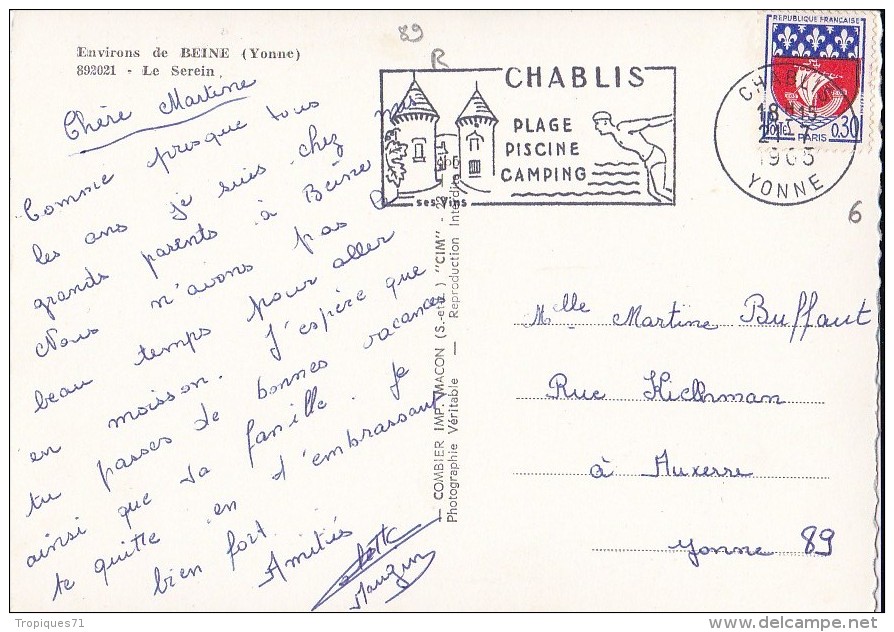 89
R
Environs de BEINE (Yonne)
892021 - Le Serein
Chère Martine
Comme presque tous
les ans je suis chez mes
grands parents à Beine
Nous n'avons pas le
beau temps pour aller
en moisson. J'espère que
tu passes de bonnes vacances
ainsi que ta famille. Je
te quitte en t'embrassant
bien fort
Amitiés
Maugin
COMBIER IMP. MACON (S.-et-L.) "CIM"
Photographie Véritable — Reproduction Interdite
CHABLIS
PLAGE
PISCINE
CAMPING
ses vins
REPUBLIQUE FRANÇAISE
POSTES PARIS 0,30
CHABLIS
18H15
21-7
1965
YONNE
6
Melle Martine Buffaut
Rue
à Auxerre
Yonne 89
Tropiques71